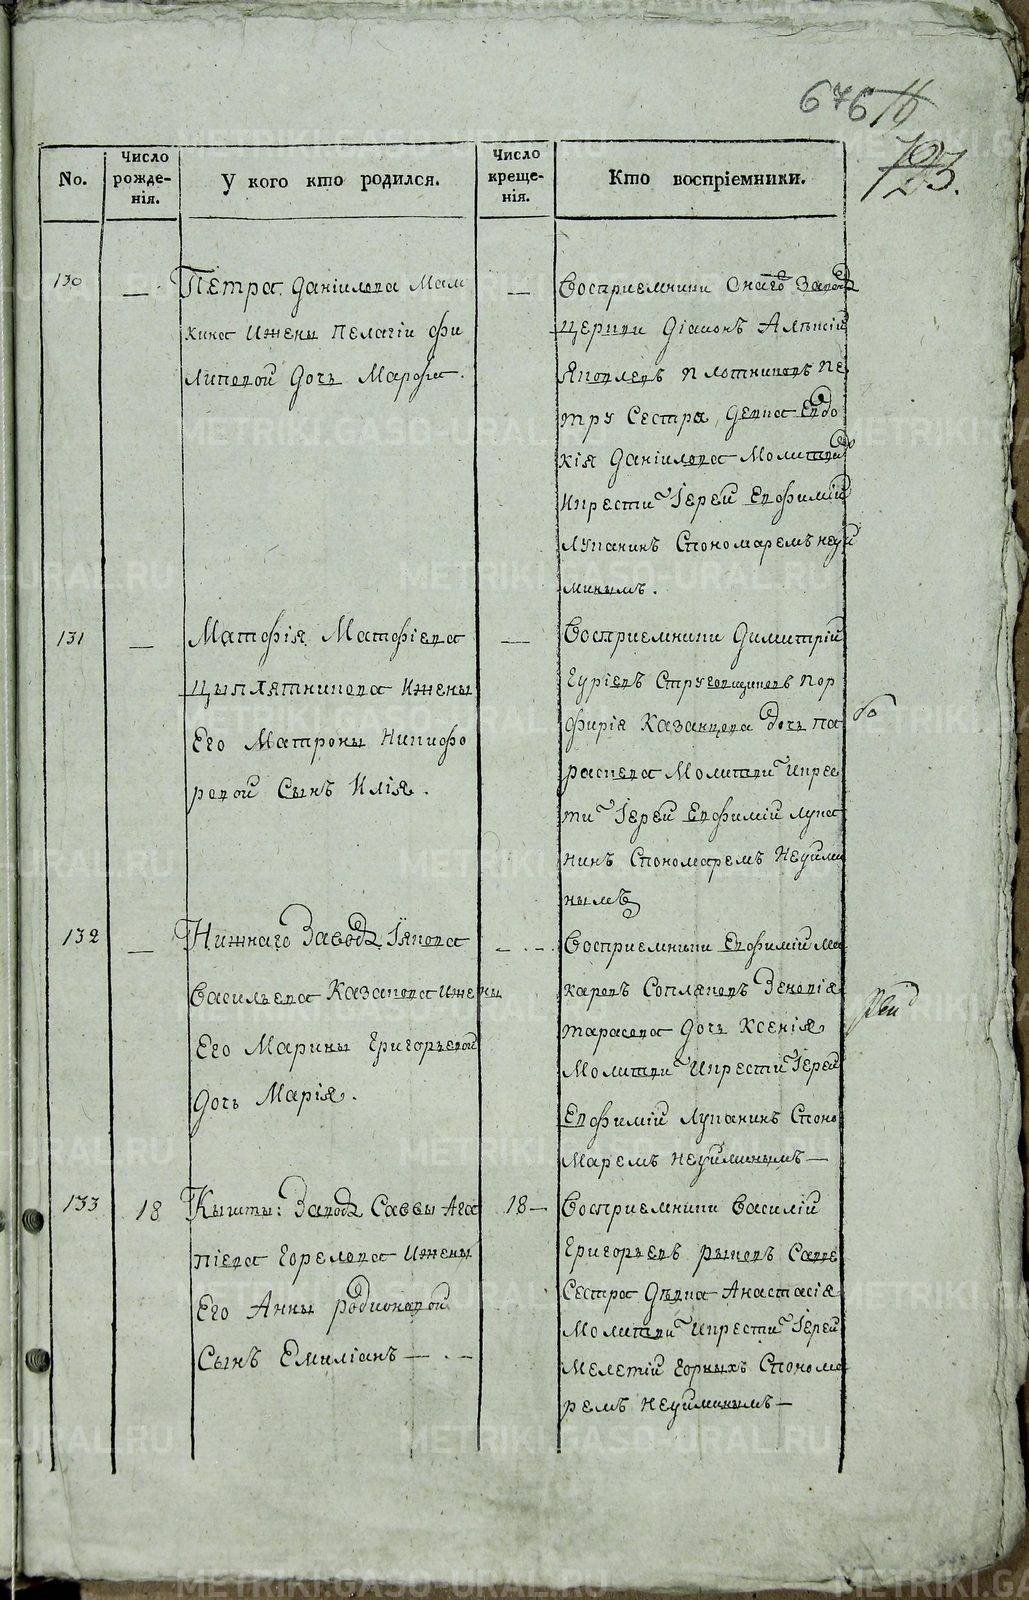 676
793.
No.
Число рожде-нія.
У кого кто родился.
Число креще-нія.
Кто воспріемники.
130
—
Петра Даніилова Мам
кина Ижены Пелагіи Фи
липовой Дочь Марфа.
—
Восприемники Онаго Завода
церкви Діаконъ Алѣксій
Яковлевъ Плотниковъ Пе
тру Сестра Девка Евдо
кія Даніилова Молитвил
Икрестилъ Іерей Евфимій
Лукинъ Спономаремъ Неуй
минымъ.
131
—
Матфія Матфіева
Цыплятникова Ижены
Его Матроны Никифо
ровой Сынъ Илія.
—
Восприемники Димитрій
Гуріевъ Пор
фирія Казанцова дочь Па
раскева Молитвил Икрес
тил Іерей Евфимій
Спономаремъ Неуйми
нымъ
132
—
Нижнаго Завода Іякова
Васильева Казакова Ижены
Его Марины Григорьевой
Дочь Марія.
—
Восприемники Евфимій Ма
каровъ Сопляковъ Зеновія
Тарасова Дочь Ксенія
Молитвил Икрестил Іерей
Евфимій Спono
Маремъ Неуйминымъ—
133
18
Кышты: Завода Саввы Ага
піева Горелова Ижены
Его Анны Родионовой
Сынъ Емиліанъ—
18—
Восприемники Василій
Григорьевъ Савве
Сестра Дѣвка Анастасія
Молитвил Икрестил Іерей
Мелетій Горныхъ Спонома
ремъ Неуйминымъ—
METRIKI.GASO-URAL.RU